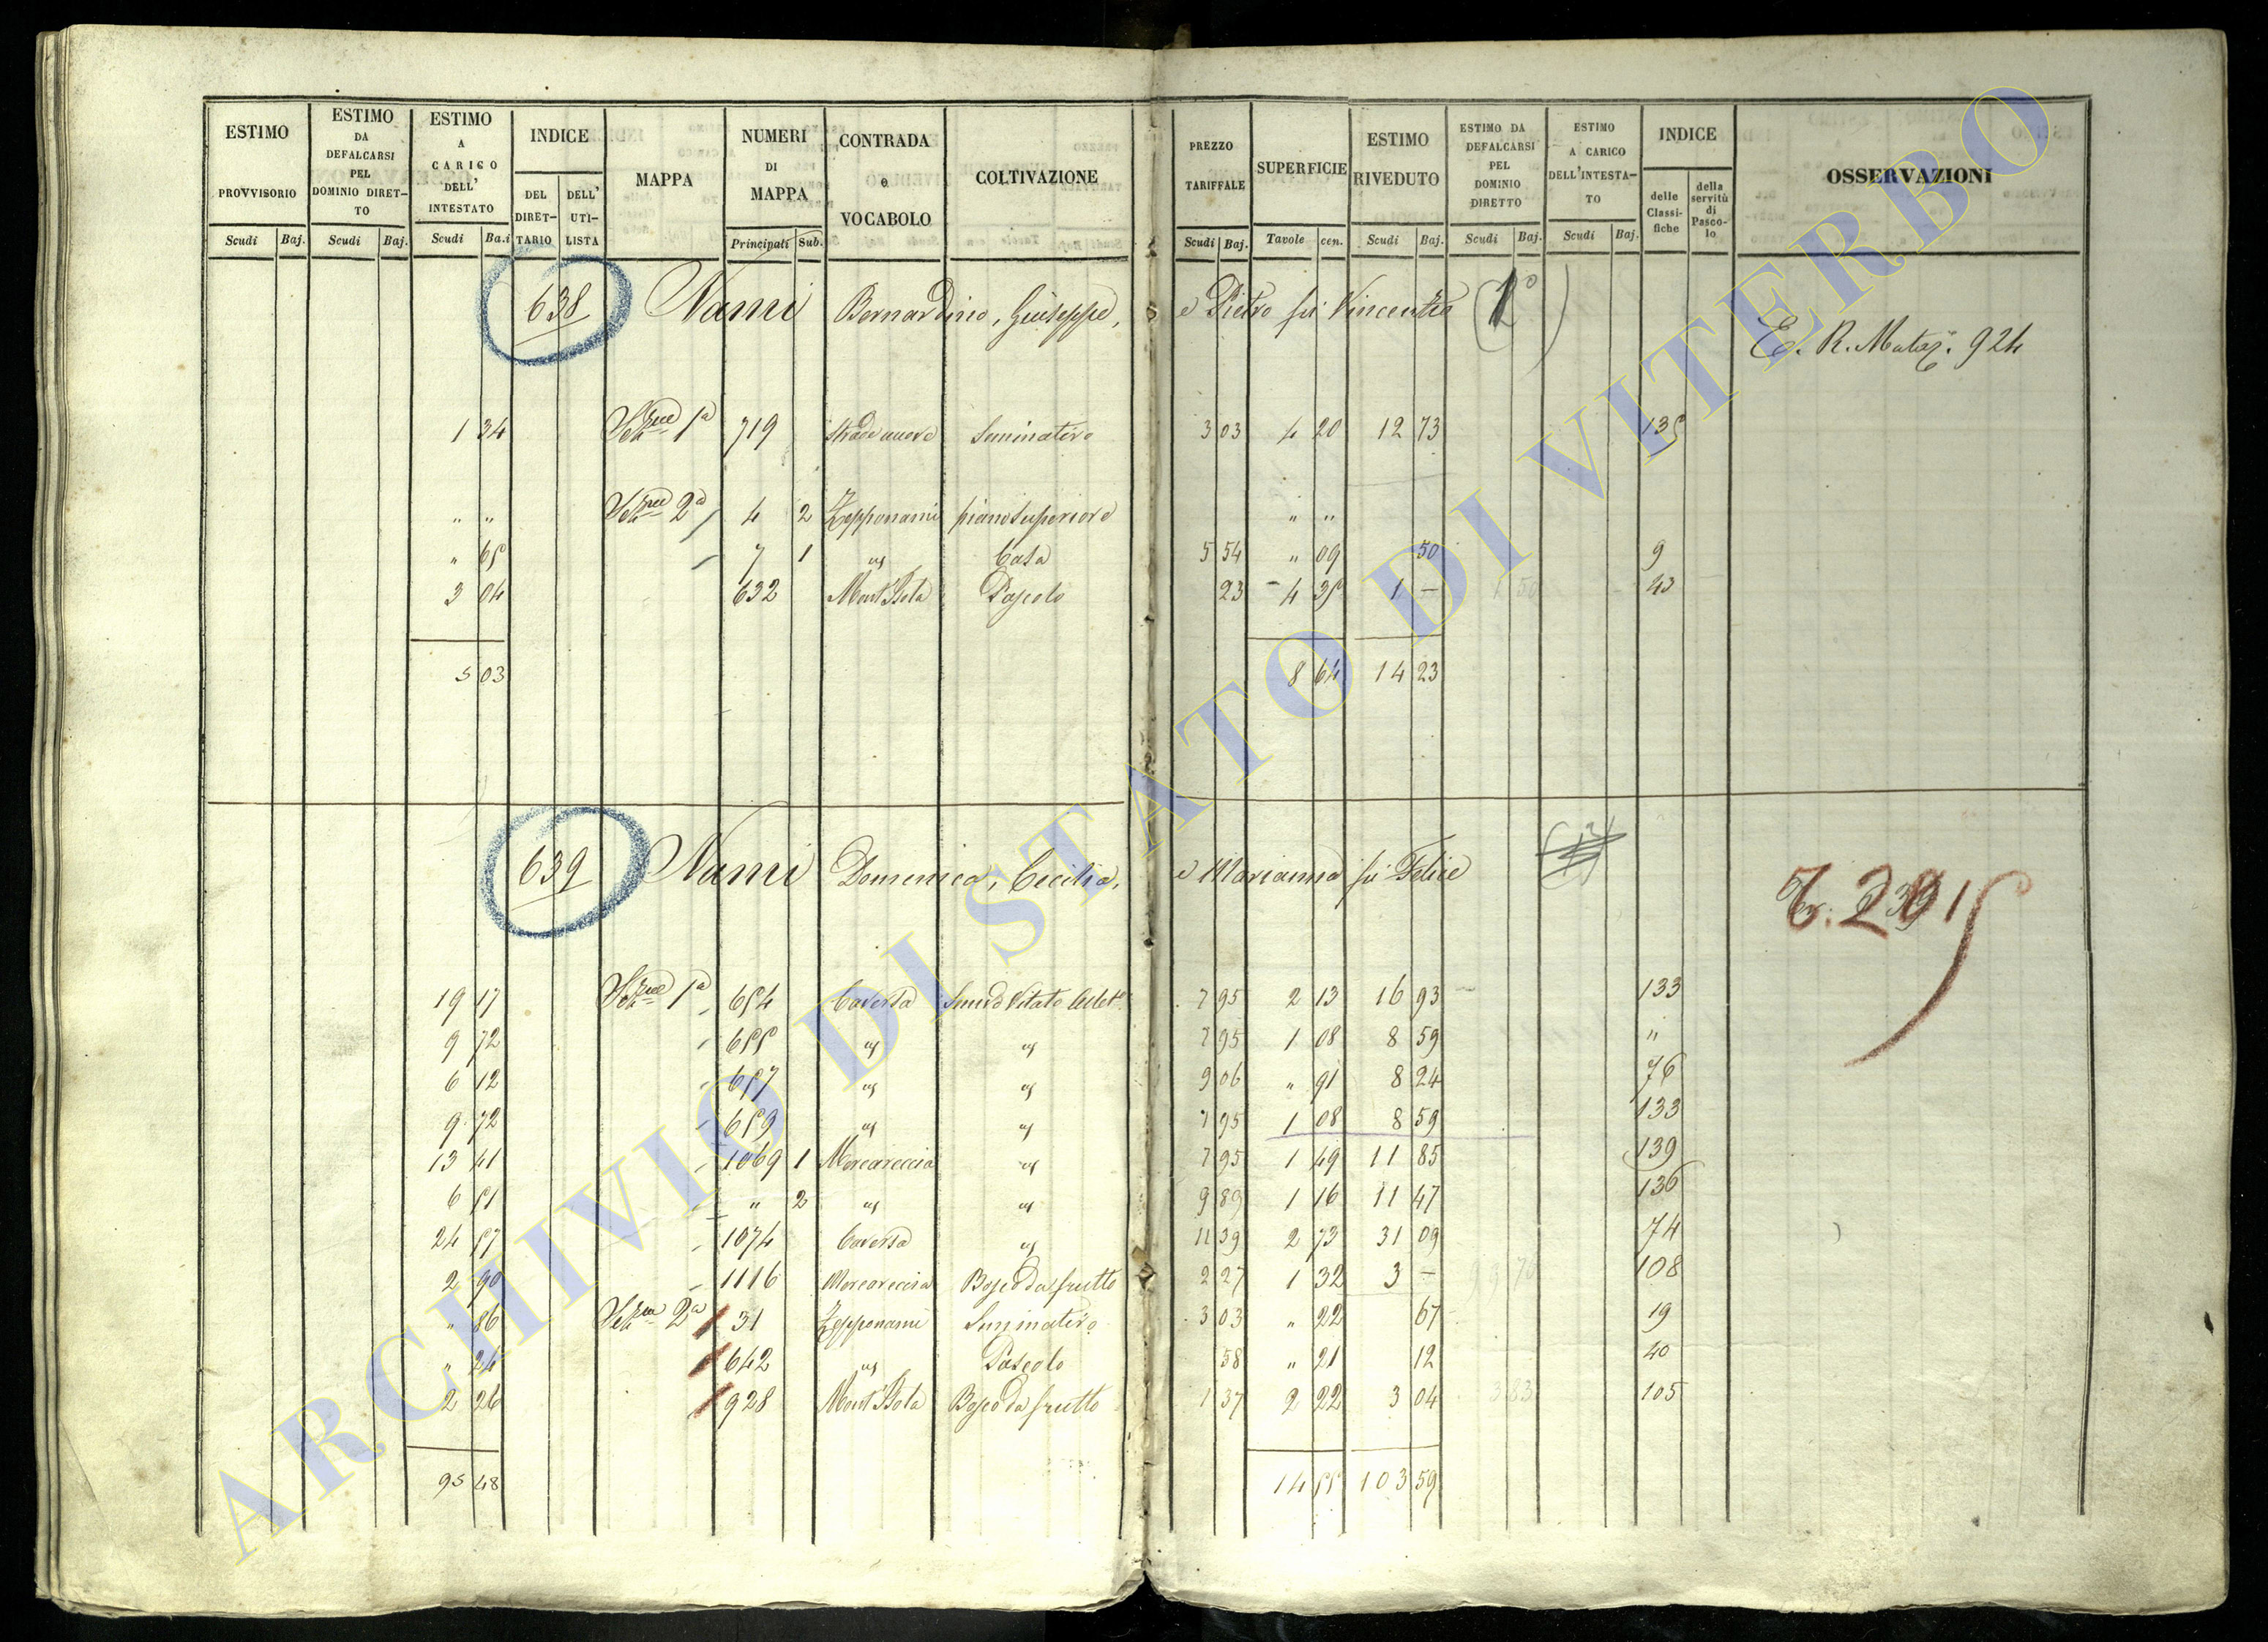 ESTIMO PROVVISORIO Scudi Baj.
ESTIMO DA DEFALCARSI PEL DOMINIO DIRET-TO Scudi Baj.
ESTIMO A CARICO DELL' INTESTATO Scudi Ba.i
INDICE DEL DIRET-TARIO DELL' UTI-LISTA
MAPPA
NUMERI DI MAPPA Principali Sub.
CONTRADA e VOCABOLO
COLTIVAZIONE
PREZZO TARIFFALE Scudi Baj.
SUPERFICIE Tavole cen.
ESTIMO RIVEDUTO Scudi Baj.
ESTIMO DA DEFALCARSI PEL DOMINIO DIRETTO Scudi Baj.
ESTIMO A CARICO DELL'INTESTA-TO Scudi Baj.
INDICE delle Classi-fiche della servitù di Pasco-lo
OSSERVAZIONI
638 Nami Bernardino, Giuseppe, e Pietro fu Vincentio (1°)
E. R. 924
1 34 1a 719 Strada nuova Seminativo 3 03 4 20 12 73 135
" " 2a 4 2 Zepponami piano superiore " "
" 65 7 1 Casa 5 54 " 09 50 9
3 04 632 Mont'Isola Pascolo 23 4 35 1 – 1 50 43
5 03 8 64 14 23
639 Nami Domenica, Cecilia, e Marianna fu Felice
T. 2015
19 17 1a 654 Caversa 7 95 2 13 16 93 133
9 72 655 7 95 1 08 8 59 "
6 12 657 9 06 " 91 8 24 76
9 72 659 7 95 1 08 8 59 133
13 41 1069 1 Morcareccia 7 95 1 49 11 85 139
6 51 " 2 9 89 1 16 11 47 136
24 57 1074 Caversa 11 39 2 73 31 09 74
2 90 1116 Morcareccia Bosco da frutto 2 27 1 32 3 – 108
" 86 2a 31 Zepponami Seminativo 3 03 " 22 67 19
" 24 642 Pascolo 58 " 21 12 40
2 26 928 Mont'Isola Bosco da frutto 1 37 2 22 3 04 3 83 105
95 48 14 55 103 59
ARCHIVIO DI STATO DI VITERBO